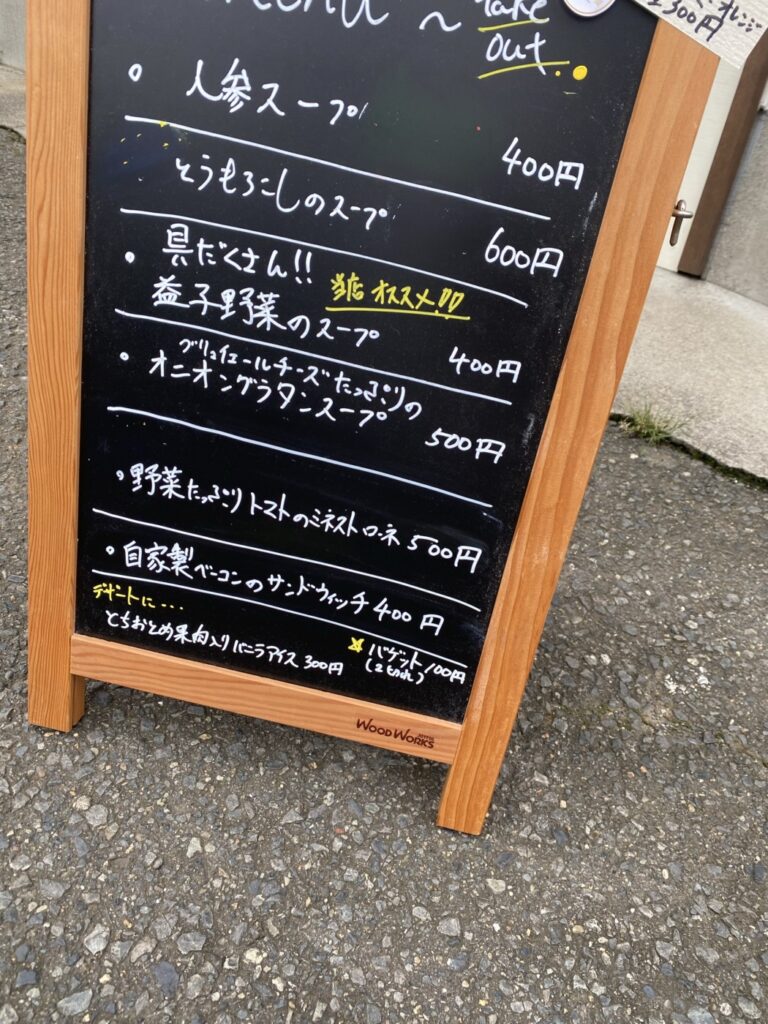 ~ take
out.
• 人参スープ
400円
とうもろこしのスープ
600円
• 具だくさん!!
益子野菜のスープ 当店オススメ!!
400円
• グリュイエールチーズたっぷりの
オニオングラタンスープ
500円
• 野菜たっぷりトマトのミネストローネ 500円
• 自家製ベーコンのサンドウィッチ 400円
デザートに...
とちおとめ果肉入りバニラアイス 300円
バゲット 100円
(2切れ)
WOOD WORKS
オレンジ
300円